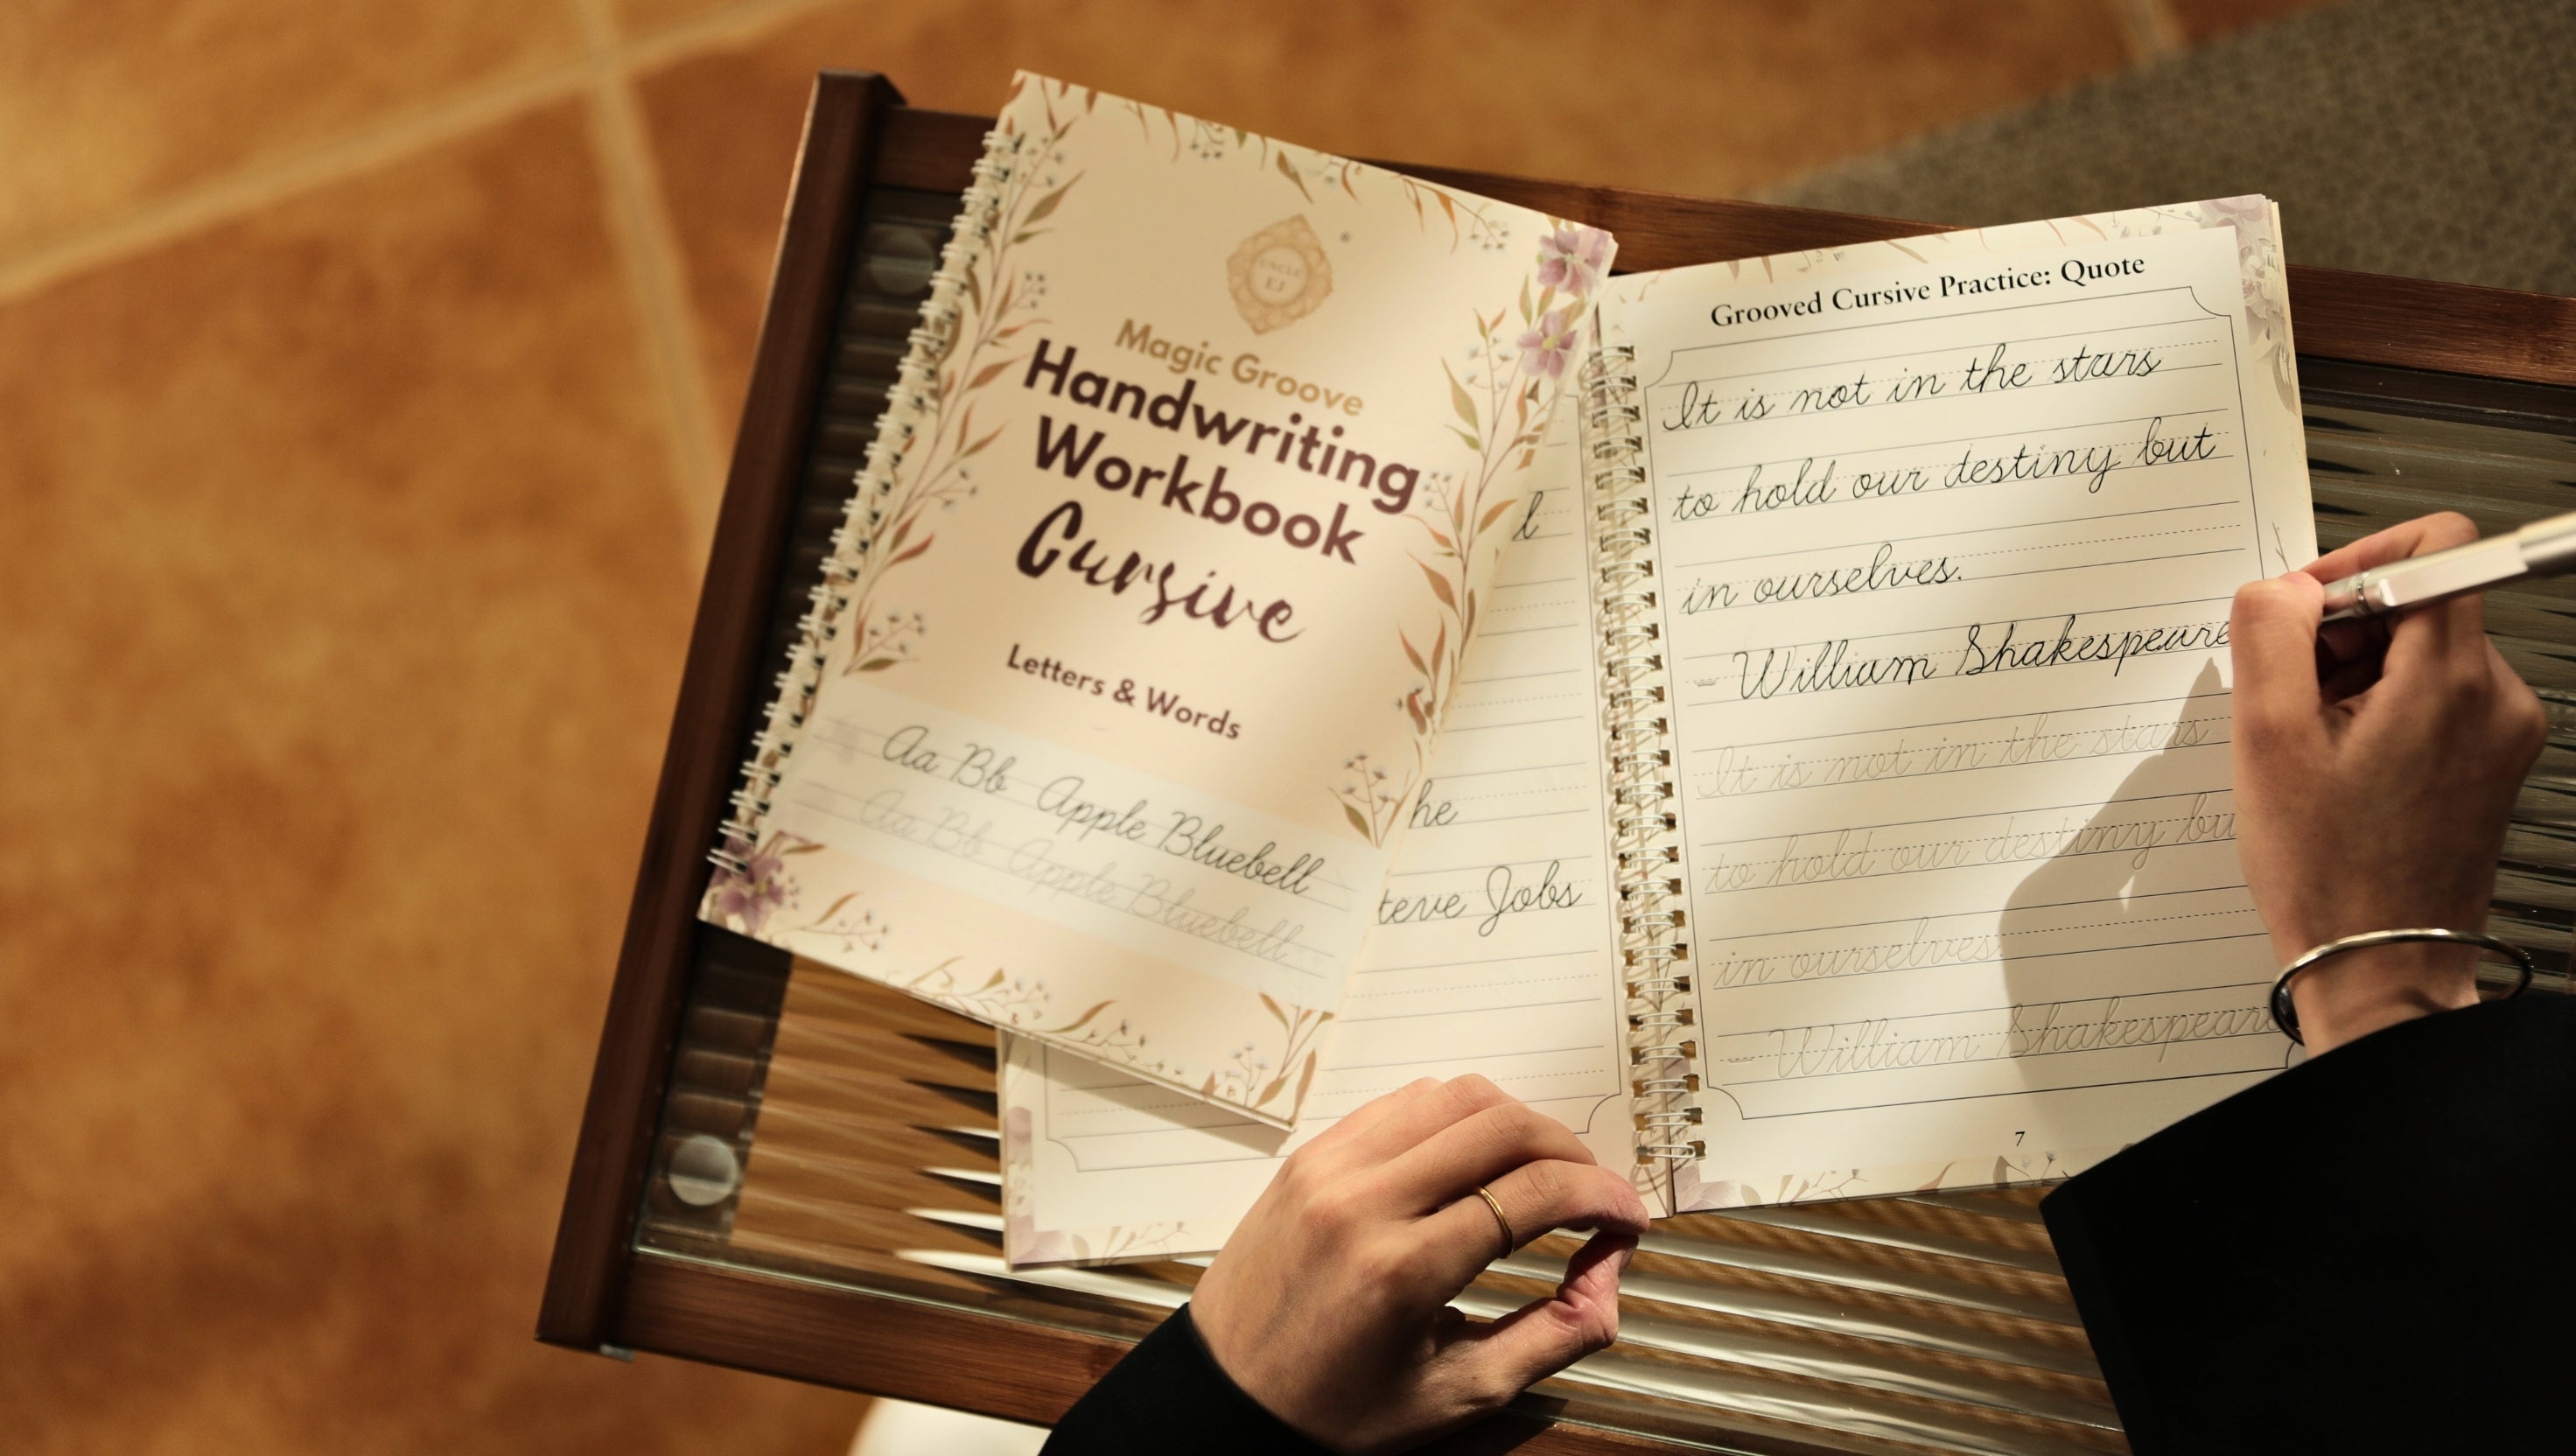 UNCLE
EJ
Magic Groove
Handwriting
Workbook
Cursive
Letters & Words
Aa Bb Apple Bluebell
Aa Bb Apple Bluebell
l
he
teve Jobs
Grooved Cursive Practice: Quote
It is not in the stars
to hold our destiny but
in ourselves.
- William Shakespeare
It is not in the stars
to hold our destiny bu
in ourselves.
- William Shakespeare
7